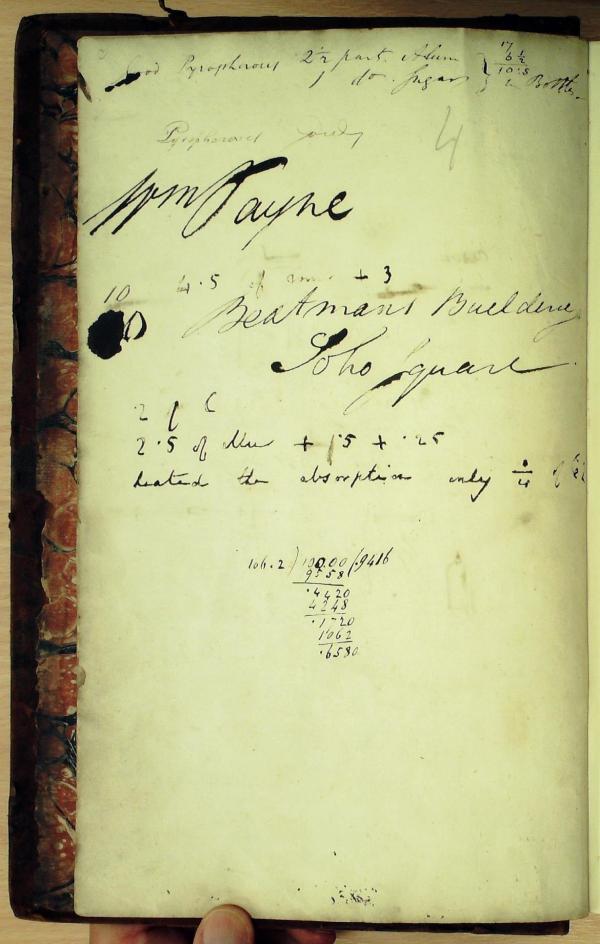 Good Pyropherous 2½ part Alum } 17
1 do. Sugar } 6½
10.5
in Bottle
Pyropherous
4
Wm Payne
10
4.5 of + 3
Beatmans Buildings
Soho Square
2
2.5 of + 1.5 + .25
heated the absorption only
106.2) 100.00 (.9416
9558
.4420
4248
.1720
1062
.6580